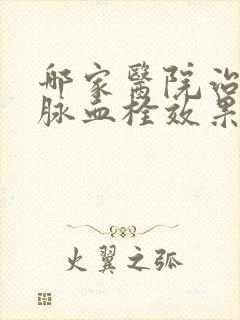 邮家醫院治
脉血栓效果
火翼之弧